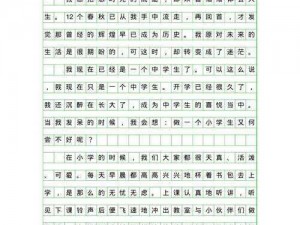 生。12个春秋已从我手中流走，再回首，才发
觉那曾经的辉煌早已成为历史。我原对未来的
生活是很期盼的，可这时，却转变成了迷茫。
我现在已经是一个中学生了。可以这么说
，我现在只是一个中学生了。开学已经很久了，
我还沉醉在长大了，成为中学生的喜悦当中。
当我发呆的时候，我会想：做一个小学生又何
尝不好呢？
在小学的时候，我们大家都很天真、活泼
、可爱。每天早晨都高高兴兴地杯着书包去上
学，是那么的无忧无虑，上课认真地听讲，听
见下课铃声后便飞速地冲出教室与小伙伴们做